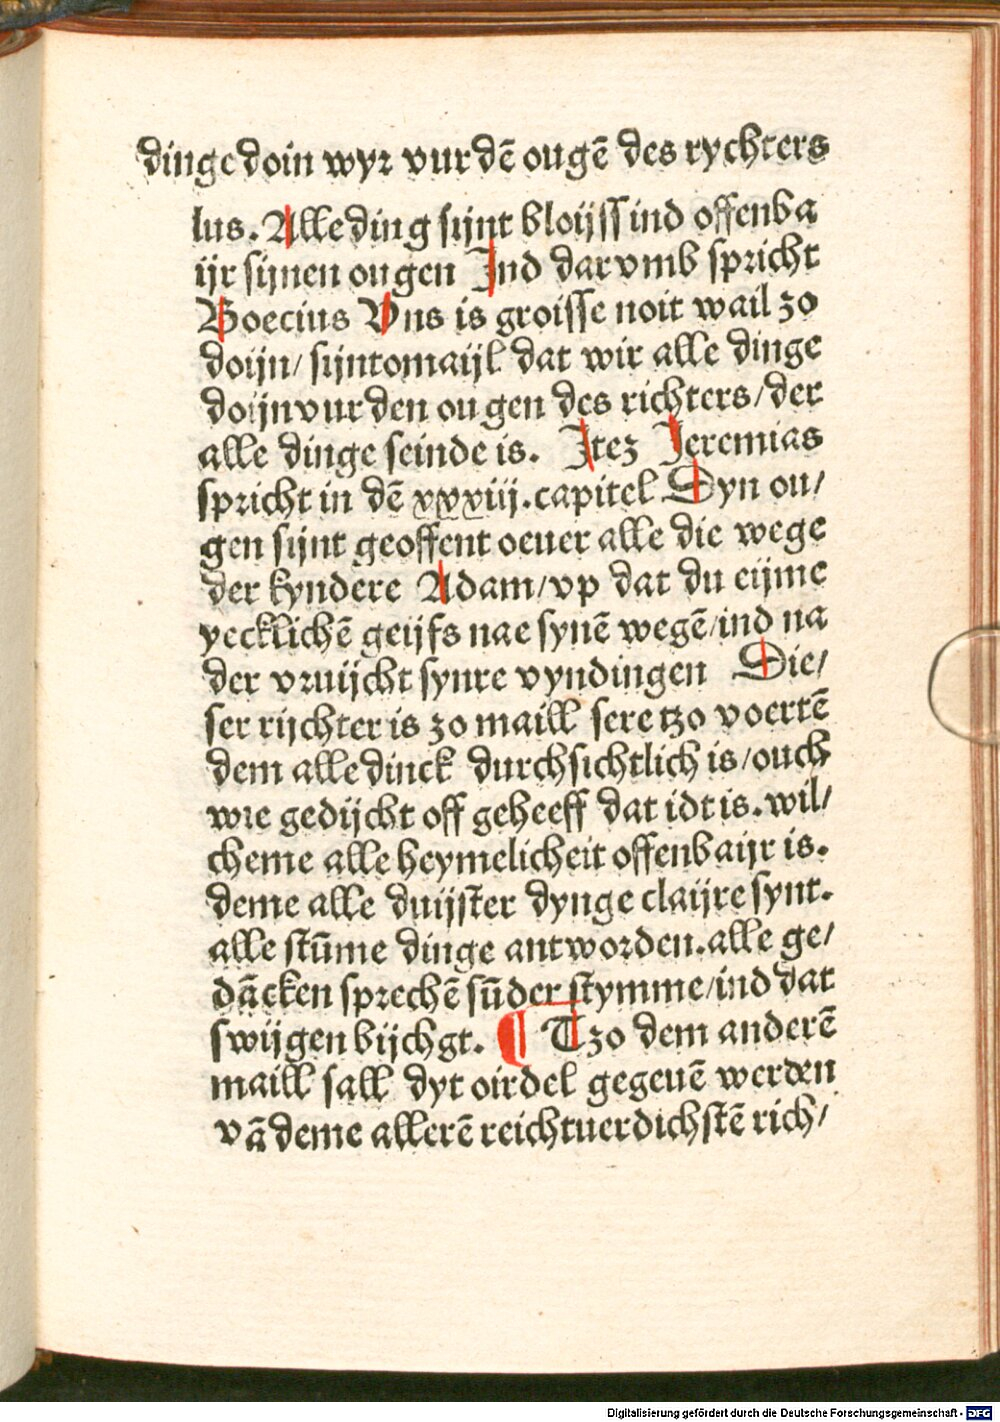 dinge doin wyr vur dē ougē des rychters
lus. Alle ding sijnt bloijss ind offenba
ijr sijnen ougen Ind dar vmb spricht
Boecius Vns is groisse noit wail zo
doijn/ sijntomaijl dat wir alle dinge
doijn vur den ougen des richters/ der
alle dinge seinde is. Itez Jeremias
spricht in dē xxxiij. capitel Dyn ou/
gen sijnt geoffent oeuer alle die wege
der kyndere Adam/ vp dat du eijme
yecklichē geijfs nae synē wegē/ ind na
der vruijcht synre vyndingen Die/
ser rijchter is zo maill sere tzo voertē
dem alle dinck durchsichtlich is/ ouch
wie gedijcht off geheeff dat idt is. wil/
cheme alle heymelicheit offenbaijr is.
deme alle duijster dynge claijre synt.
alle stūme dinge antworden. alle ge/
dācken sprechē sūder stymme/ ind dat
swijgen bijchgt. ¶ Tzo dem anderē
maill sall dyt oirdel gegeuē werden
vā deme allerē reichtuerdichstē rich/
Digitalisierung gefördert durch die Deutsche Forschungsgemeinschaft - DFG